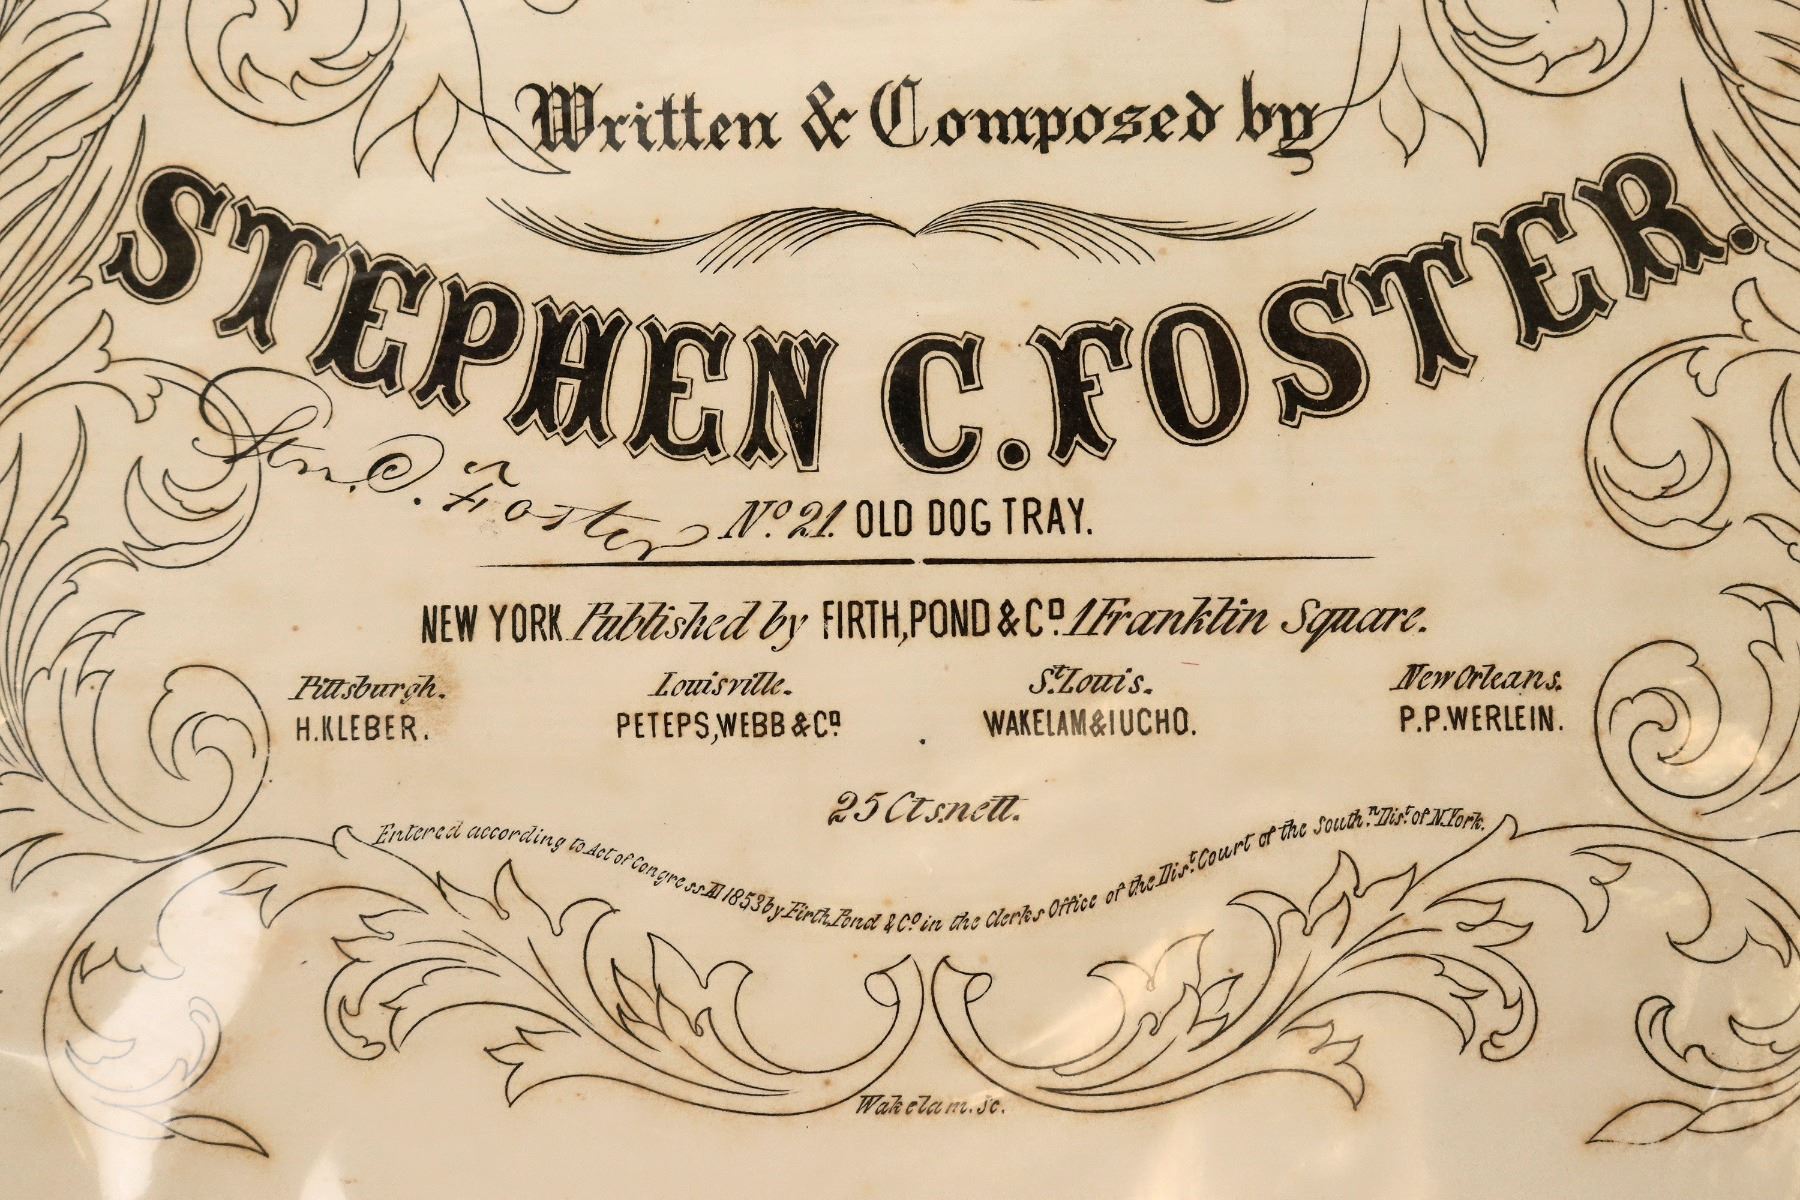 Written & Composed by
STEPHEN C. FOSTER.
Stn. C. Foster
No. 21. OLD DOG TRAY.
NEW YORK Published by FIRTH, POND & Co. 1 Franklin Square.
Pittsburgh. Louisville. St. Louis. New Orleans.
H. KLEBER. PETEPS, WEBB & Co. WAKELAM & IUCHO. P. P. WERLEIN.
25 Cts. nett.
Entered according to Act of Congress AD 1853 by Firth, Pond & Co. in the Clerks Office of the Dist. Court of the Southn. Dist. of N. York.
Wakelam. sc.